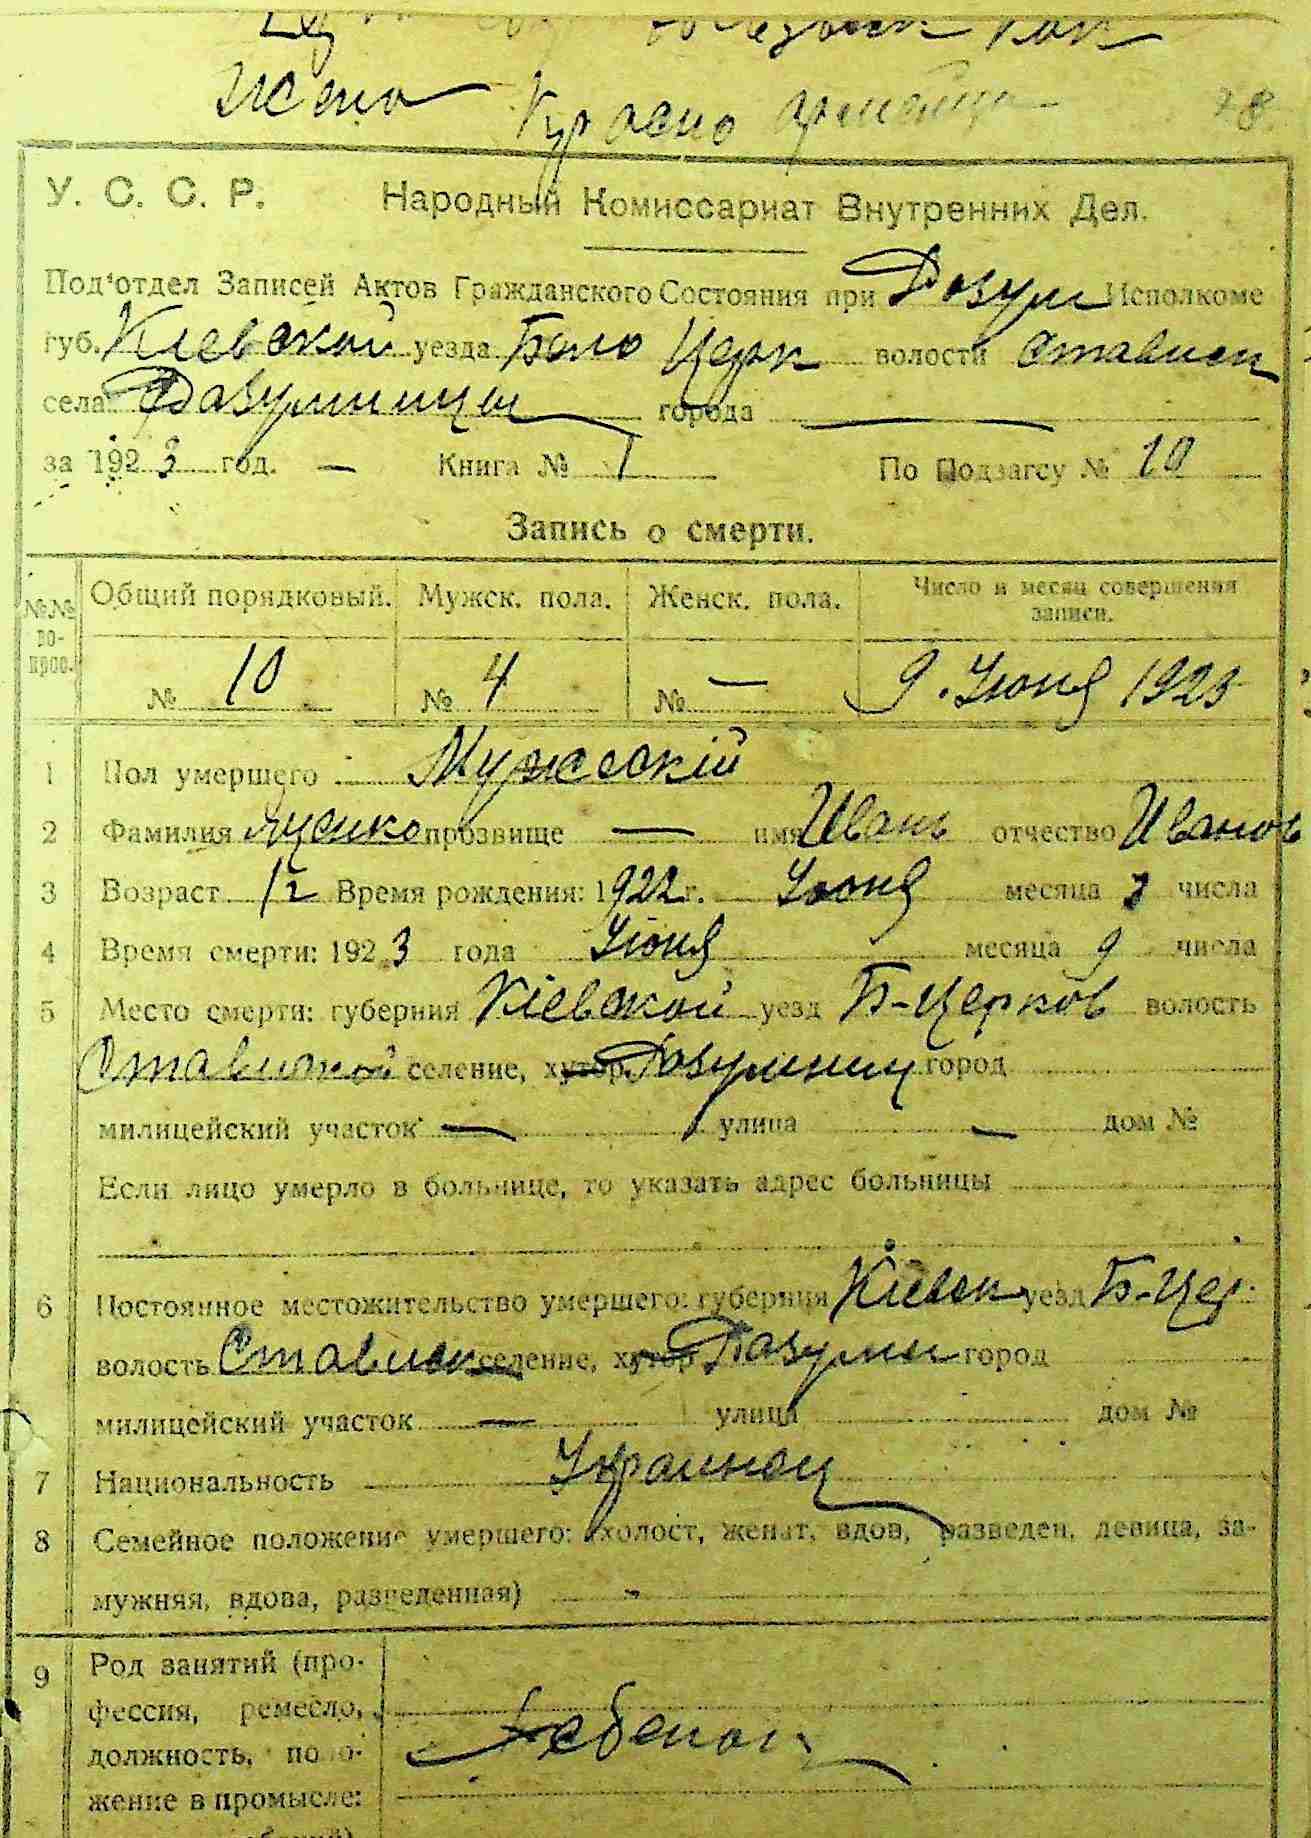 Жена Красно армейца 78
У. С. С. Р. Народный Комиссариат Внутренних Дел.
Под'отдел Записей Актов Гражданского Состояния при Розум Исполкоме
губ. Кіевской уезда Бело Церк волости Ставищ
села Розумницы города —
за 1923 год. — Книга № 1 По Подзагсу № 10
Запись о смерти.
№№ во- прос. Общий порядковый. Мужск. пола. Женск. пола. Число и месяц совершения записи.
№ 10 № 4 № — 9. Июня 1923
1 Пол умершего Мужескій
2 Фамилия прозвище — имя Иван отчество Иванов
3 Возраст 1 г Время рождения: 1922 г. Июня месяца 7 числа
4 Время смерти: 1923 года Июня месяца 9 числа
5 Место смерти: губерния Кіевской уезд Б-Церков волость
Ставиской селение, хутор Розумниц город
милицейский участок — улица — дом №
Если лицо умерло в больнице, то указать адрес больницы
6 Постоянное местожительство умершего: губерния Кіевск уезд Б-Цер.
волость Стависк селение, хутор Розумн город
милицейский участок — улица дом №
7 Национальность Украинец
8 Семейное положение умершего: (холост, женат, вдов, разведен, девица, за-
мужняя, вдова, разведенная) -
9 Род занятий (про-
фессия, ремесло,
должность, поло- Ребенок
жение в промысле: